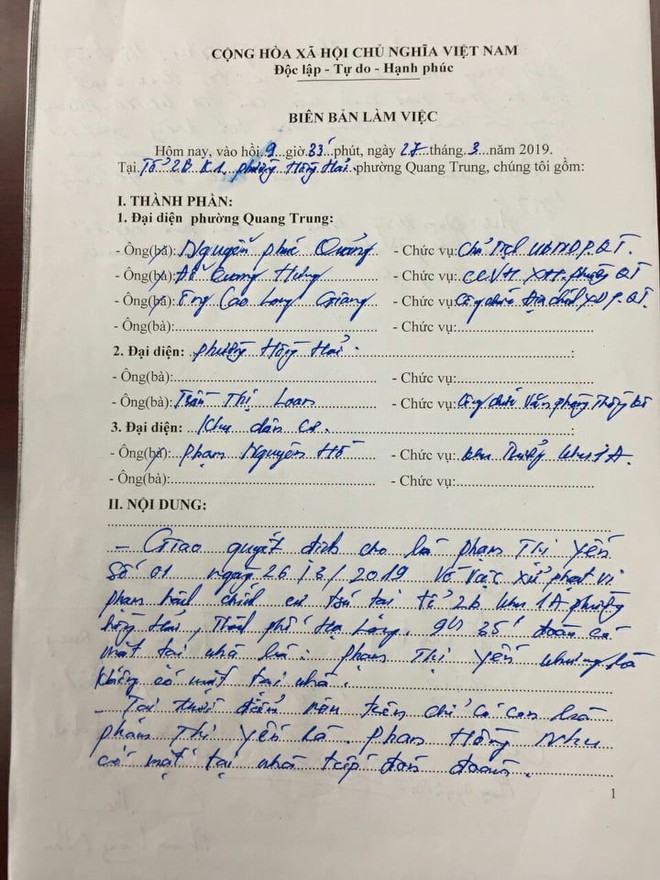 CỘNG HÒA XÃ HỘI CHỦ NGHĨA VIỆT NAM
Độc lập - Tự do - Hạnh phúc
BIÊN BẢN LÀM VIỆC
Hôm nay, vào hồi 9 giờ 33 phút, ngày 27 tháng 3 năm 2019.
Tại Tổ 2B K1 phường Hồng Hải phường Quang Trung, chúng tôi gồm:
I. THÀNH PHẦN:
1. Đại diện phường Quang Trung:
- Ông(bà): Nguyễn phúc Quảng - Chức vụ: Chủ tịch UBND P. QT.
- Ông(bà): Đỗ Cương Hưng - Chức vụ: CCVH. XH. phường QT
- Ông(bà): Ông Cao Long Giang - Chức vụ: Công chức Địa chính XD P. QT.
- Ông(bà): - Chức vụ:
2. Đại diện: phường Hồng Hải. :
- Ông(bà): - Chức vụ:
- Ông(bà): Trần Thị Loan - Chức vụ: Công chức Văn phòng Thống kê
3. Đại diện: Khu dân cư. :
- Ông(bà): Phạm Nguyên Hồ - Chức vụ: khu 1A.
- Ông(bà): - Chức vụ:
II. NỘI DUNG:
- Giao quyết định cho bà phạm Thị Yến
Số 01 ngày 26/3/2019 Về việc xử phạt vi
phạm hành chính cư trú tại tổ 2b khu 1A phường
hồng Hải, Thành phố Hạ Long. 9h 35' đoàn có
mặt tại nhà bà: phạm Thị Yến nhưng bà
không có mặt tại nhà.
- Tại thời điểm nêu trên chỉ có con bà
phạm Thị yến là phạm Hồng Nhu
có mặt tại nhà tiếp đón đoàn.
1